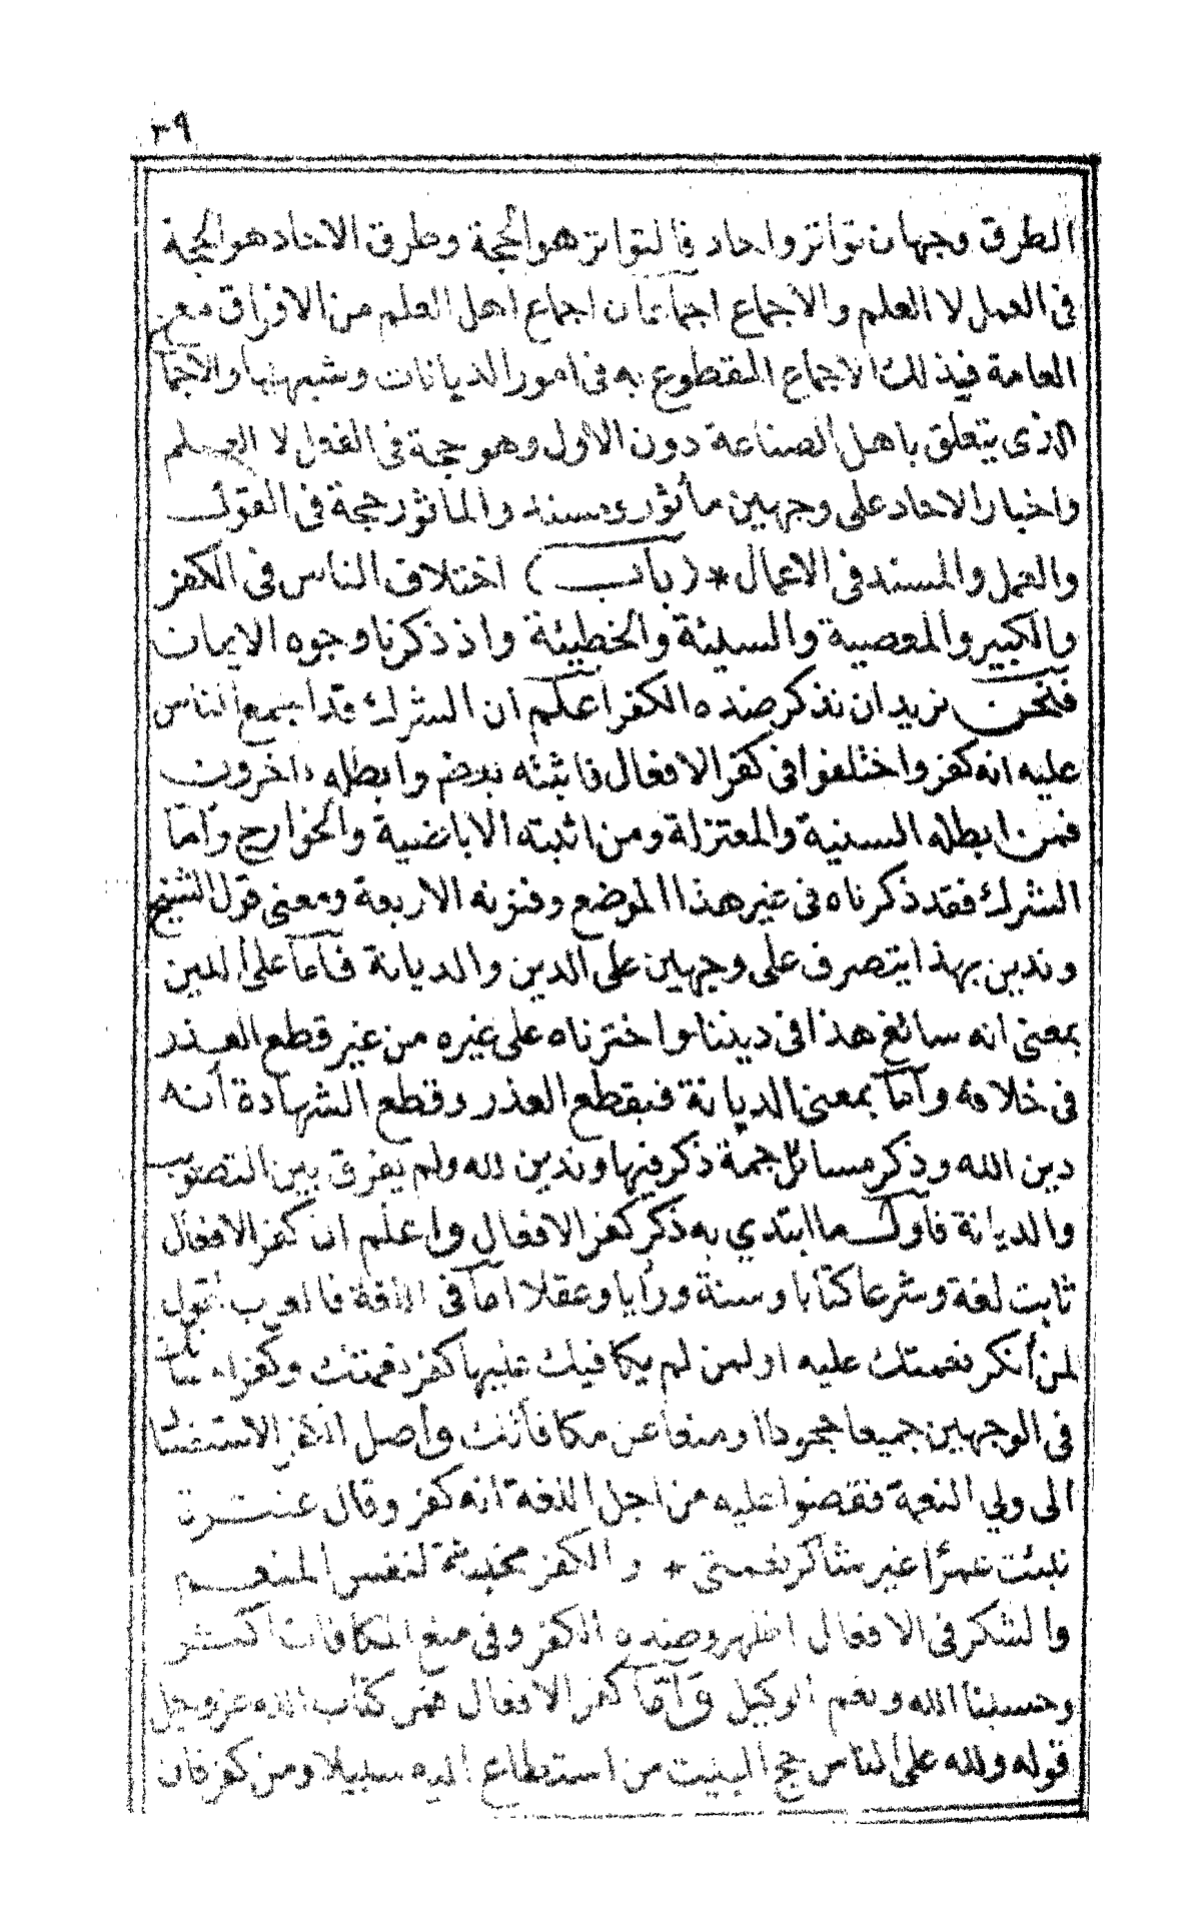 ٣٩
الطرق وجهان تواتر واحاد فالتواتر هو الحجة وطرق الاحاد هو الحجة
فى العمل لا العلم والاجماع اجماعان اجماع اهل العلم من الافراق مع
العامة فيذلك الاجماع المقطوع به فى امور الديانات وشبهها والاجما
الذى يتعلق باهل الصناعة دون الاول وهو حجة فى الفعل لا العلم
واخبار الاحاد على وجهين مأثور ومسند والمأثور حجة فى القول
والعمل والمسند فى الاعمال * (باب) اختلاف الناس فى الكفر
والكبير والمعصية والسيئة والخطيئة واذ ذكرنا وجوه الايمان
فنحن نريد ان نذكر ضده الكفر اعلم ان الشرك قد اجمع الناس
عليه انه كفر واختلفوا فى كفر الافعال فاثبته بعض وابطله اخرون
فمن ابطله السنية والمعتزلة ومن اثبته الاباضية والخوارج واما
الشرك فقد ذكرناه فى غير هذا الموضع وفنونه الاربعة ومعنى قول الشيخ
وندين بهذا يتصرف على وجهين على الدين والديانة فاما على الدين
بمعنى انه سائغ هذا فى ديننا واخترناه على غيره من غير قطع العذر
فى خلافه واما بمعنى الديانة فبقطع العذر وقطع الشهادة أنه
دين الله وذكر مسائل جمة ذكر فيها وندين لله ولم يفرق بين التصويب
والديانة فاول ما ابتدي به ذكر كفر الافعال واعلم ان كفر الافعال
ثابت لغة وشرعا كتابا وسنة ورأيا وعقلا اما فى اللغة فالعرب تقول
لمن أنكر نعمتك عليه او لمن لم يكافيك عليها كفر نعمتك وكفرانه
فى الوجهين جميعا جحودا ومنعا عن مكافأتك وأصل الكفر الاستفسا
الى ولي النعمة فقضوا عليه من اجل اللغة انه كفر وقال عنترة
نبئت عمرًا غير شاكر نعمتى + والكفر مخبثة لنفس المنعم
والشكر فى الافعال اظهر وضده الكفر وفى منع المكافات اكثر
وحسبنا الله ونعم الوكيل وأما كفر الافعال فمن كتاب الله عز وجل
قوله ولله على الناس حج البيت من استطاع اليه سبيلا ومن كفر فان